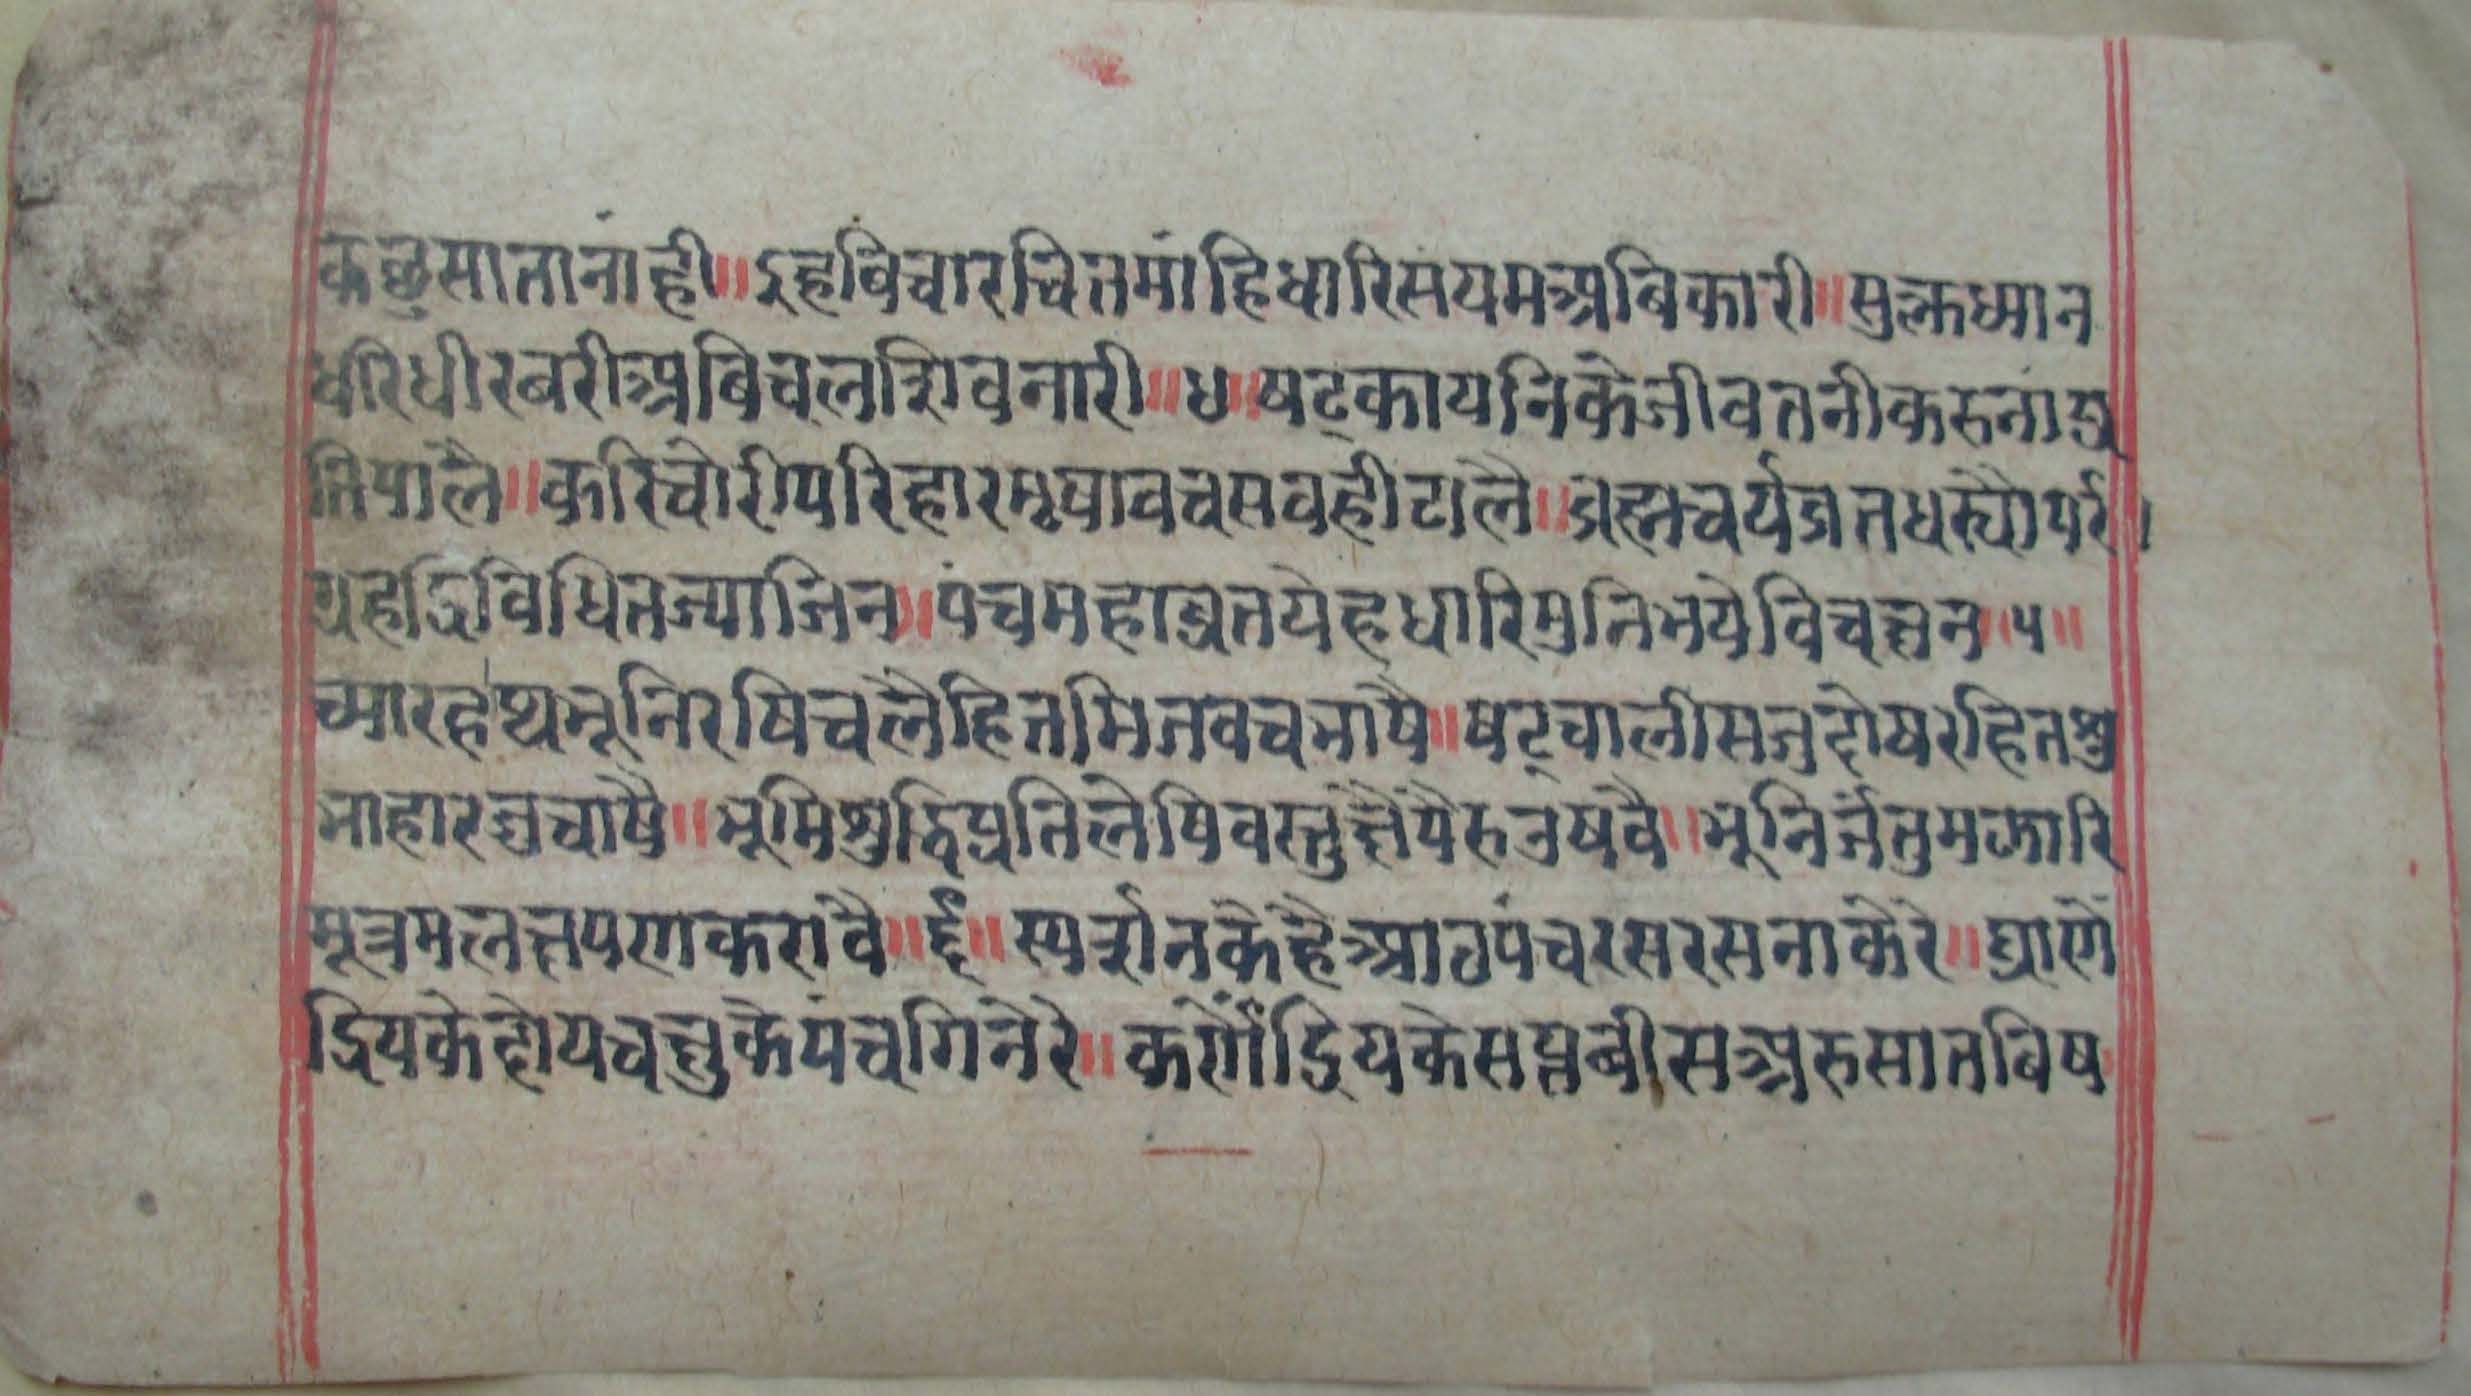 कछुसातानांही॥इहविचारचितमांहिधारिसंयमअबिकारी॥सुक्लध्यान
धरिधीरबरीअबिचलशिवनारी॥४॥षट्कायनिकेजीवतनीकरुनांप्र
तिपालै॥करिचोरीपरिहारमृषावचसवहीटालै॥ब्रह्मचर्यव्रतधर्यौपरि
ग्रहद्विविधितज्याजिन॥पंचमहाव्रतयेहधारिमुनिभयेविचक्षन॥५॥
च्यारहंथभूनिरषिचलैहितमितवचभाषै॥षट्चालीसजुदोषरहितशु
भाहारचाषै॥भूमिशुद्धिप्रतिलेषिवस्तुरुषवै॥भूनिर्जंतुमझारि
मूत्रमलक्षपणकरावै॥६॥स्पर्शनकेहैआठपंचरसरसनाकेरे॥घ्राणें
द्रियकेदोयचक्षुकेपंचगिनेरे॥कर्णेंद्रियकेसप्तबीसअरुसातबिष